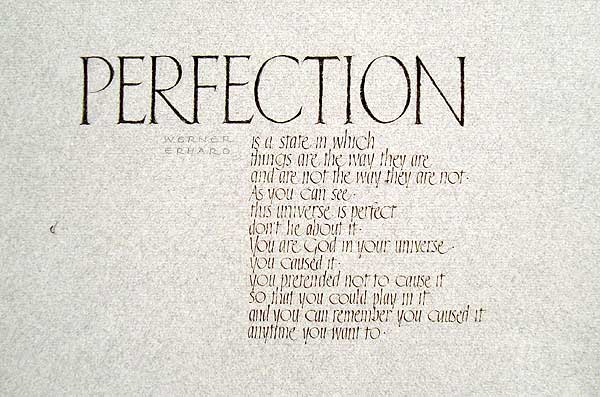 PERFECTION
WERNER
ERHARD
is a state in which
things are the way they are
and are not the way they are not.
As you can see.
this universe is perfect
don't lie about it.
You are God in your universe.
You caused it.
you pretended not to cause it
so that you could play in it
and you can remember you caused it
anytime you want to.